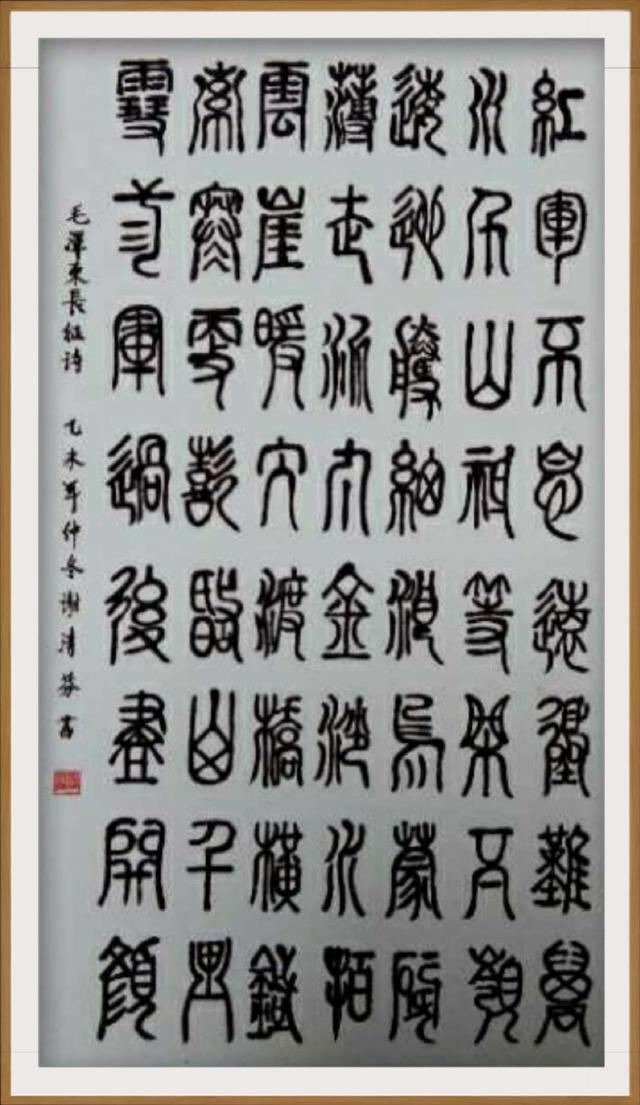 紅軍不怕遠征難萬
水千山只等閑五嶺
逶迤騰細浪烏蒙磅
薄走泥丸金沙水拍
雲崖暖大渡橋橫鐵
索寒更喜岷山千里
雪三軍過後盡開顏
毛澤東長征詩 乙未年仲冬謝清芬書